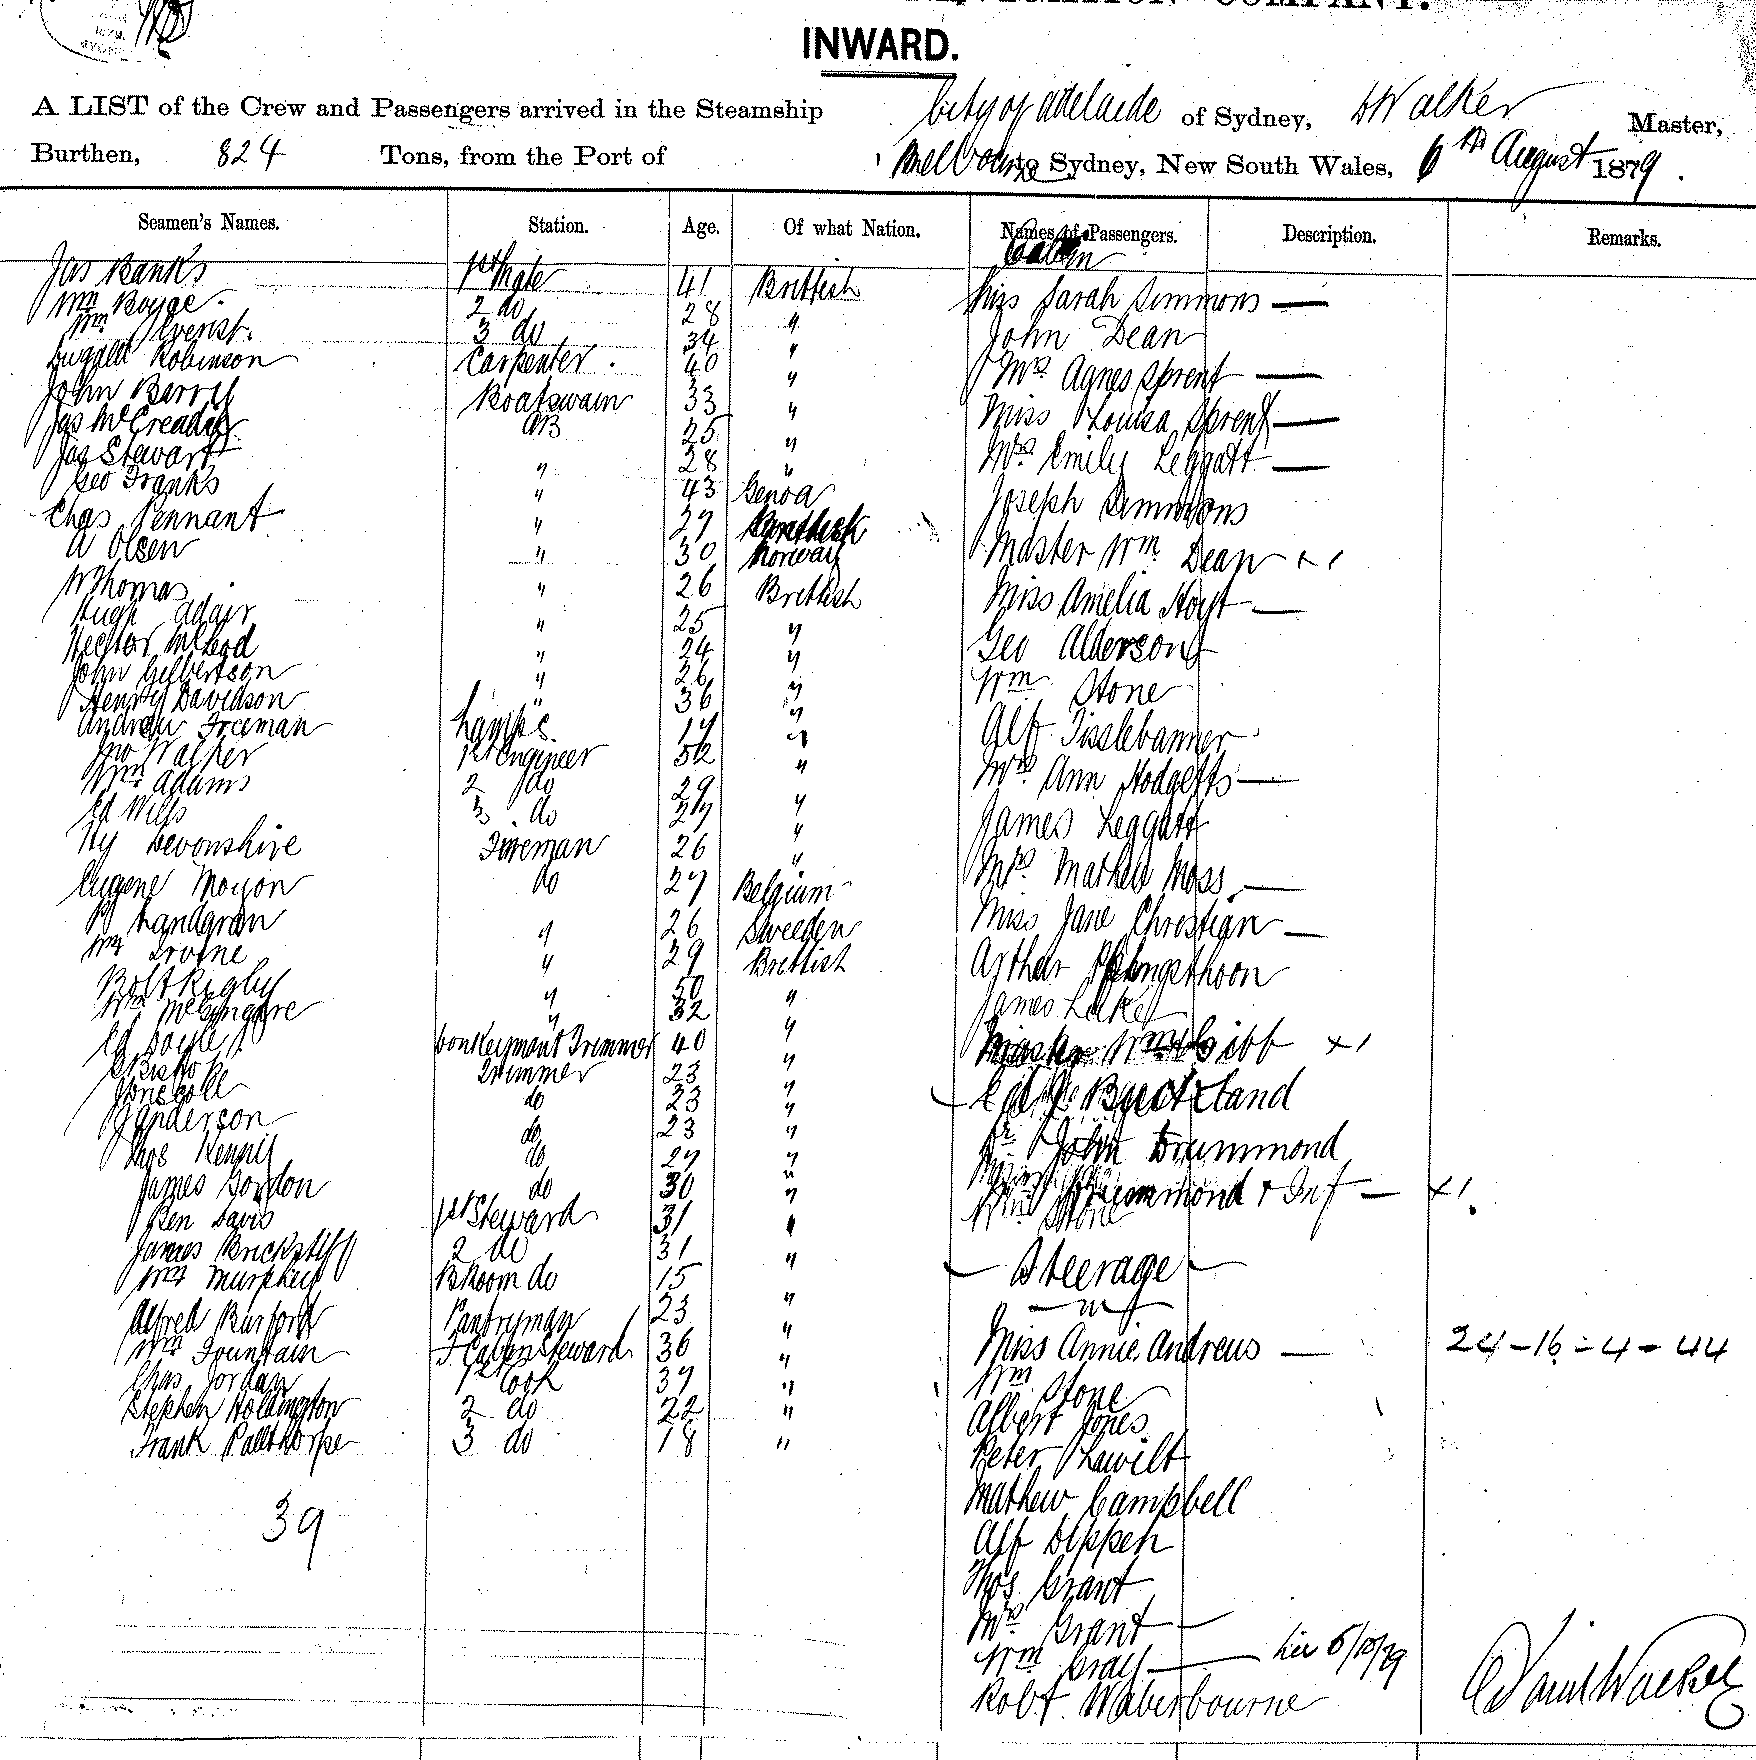 COMPANY.
INWARD.
A LIST of the Crew and Passengers arrived in the Steamship City of Adelaide of Sydney, Walker Master,
Burthen, 824 Tons, from the Port of Melbourne to Sydney, New South Wales, 6th August 1879.
Seamen's Names. Station. Age. Of what Nation. Names of Passengers. Description. Remarks.
Jas Banks 1st Mate 41 Brittish
Wm 2 do 28 "
Wm 3 do 34 "
Dugald Robinson Carpenter 40 "
John Boatswain 33 "
Jas McCready AB 25 "
Jas Stewart " 28 "
Geo Franks " 43 Genoa
Chas Pennant " 27 Brittish
A Olsen " 30 Norway
W Thomas " 26 Brittish
Hugh Adair " 25 "
Hector McLeod " 24 "
John Gilbertson " 26 "
Henry Davidson " 36 "
Andrew Freeman Lamps 17 "
Jno Walker 1st Engineer 52 "
Wm Adams 2 do 29 "
Ed Wills 3 do 27 "
Hy Devonshire Fireman 26 "
Eugene Moyon do 27 Belgium
Landgran " 26 Sweden
Wm Irvine " 29 Brittish
Robt Rigby " 50 "
Wm " 32 "
Ed Doyle Donkeyman & Trimmer 40 "
Trimmer 23 "
do 23 "
J Anderson do 23 "
Thos do 27 "
James Gordon do 30 "
Ben Davis 1st Steward 31 "
James 2 do 31 "
Wm Murphey B Room do 15 "
Alfred Burford Pantryman 23 "
Wm Fountain F Cabin Steward 36 "
Chas Jordan 1st Cook 39 "
Stephen Holdington 2 do 22 "
Frank Pallthorpe 3 do 18 "
39
Cabin
Miss Sarah Simmons —
John Dean
Mrs Agnes Sprent —
Miss Louisa Sprent —
Mrs Emily Leggatt —
Joseph Simmons
Master Wm Dean x 1
Miss Amelia Hoyt —
Geo Alderson
Wm Stone
Alf Tisslebanner
Mrs Ann Hodgetts —
James Leggatt
Mrs Mathew Moss —
Miss Jane Christian —
Arthur
James
Master Wm Gibb x 1
Buckland
Dr John Drummond
Mrs Drummond & Inf — x 1.
Wm Stone
Steerage
Miss Annie Andrews — 24 - 16 - 4 - 44
Wm Stone
Albert Jones
Peter
Mathew Campbell
Alf Dippen
Thos Grant
Mrs Grant —
Wm Gray — 5/10/79
Robt Waberbourne
David Walker